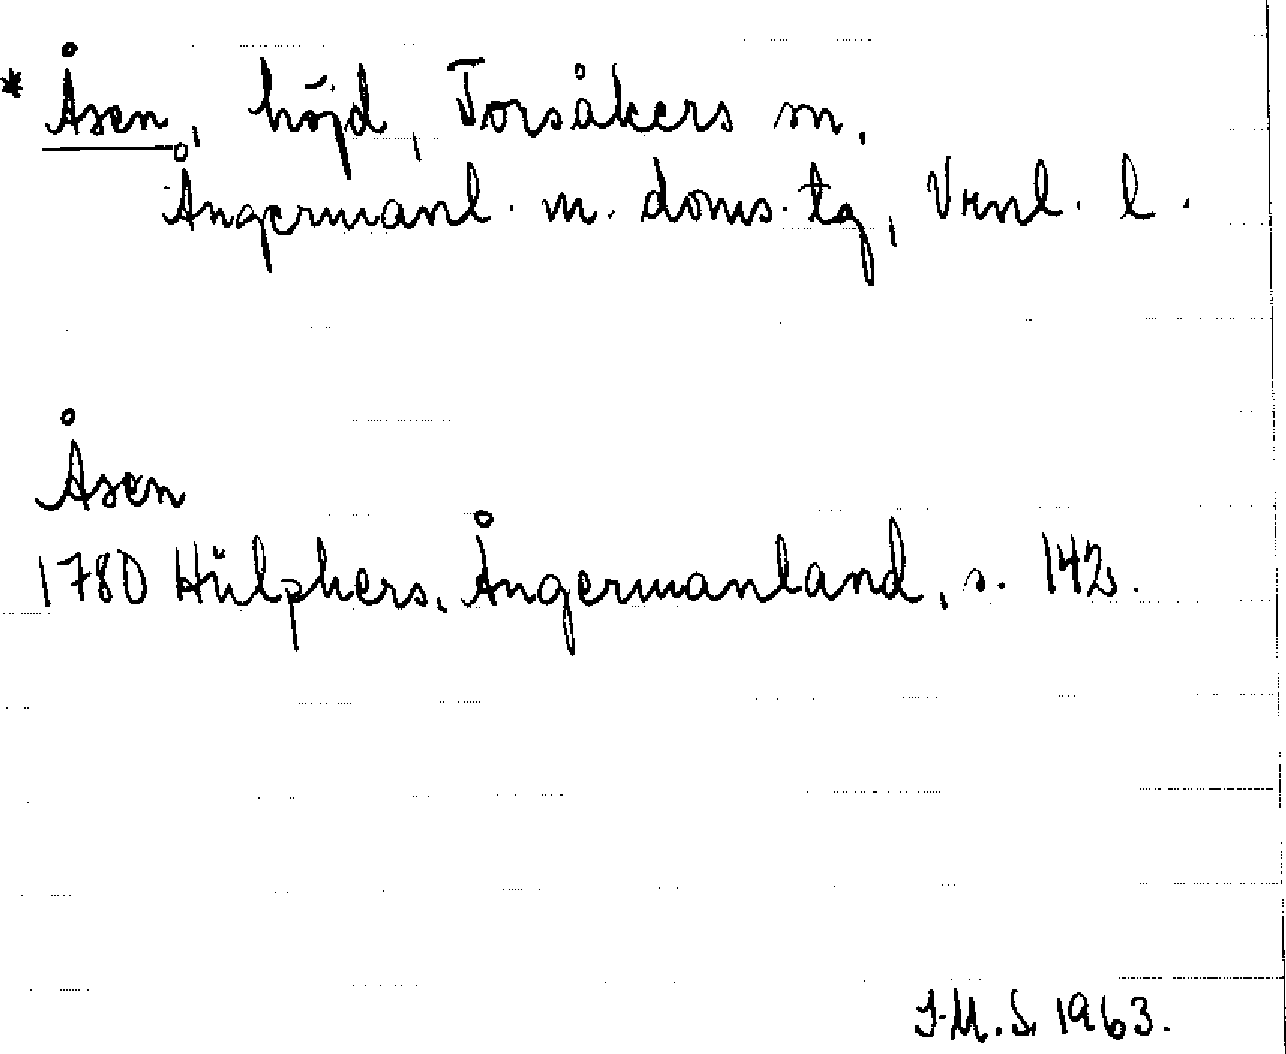 * Åsen, höjd, Torsåkers sn,
Ångermanl. m. doms. tg, Vrnl. l.
Åsen
1780 Hülphers, Ångermanland, s. 142.
J.M.S. 1963.